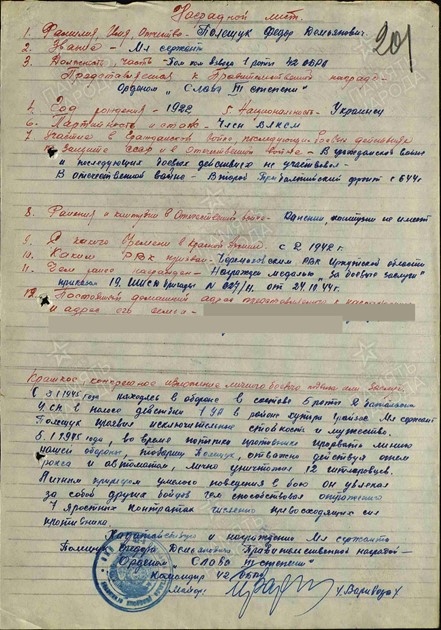 Наградной лист.
201
1. Фамилия, Имя, Отчество - Полещук Федор Демьянович
2. Звание - Мл сержант
3. Должность, часть - взвода 1 роты 42
Представляется к Правительственной награде -
Орденом „Слава III степени"
4. Год рождения - 1922 5. Национальность - Украинец
6. Партийность и стаж - Член ВЛКСМ
7. Участие в Гражданской войне последующих боевых действиях
по защите СССР и в Отечественной войне - В гражданской войне
и последующих боевых действиях не участвовал -
В отечественной войне - Второй Прибалтийский фронт с
8. Ранения и контузии в Отечественной войне - Ранений, контузии не имеет
9. С какого времени в Красной Армии. с 2.1942 г.
10. Каким РВК призван - Черемховским РВК Иркутской области
11. Чем ранее награжден - Награжден медалью „За боевые заслуги"
приказ 19 бригады № от 24.10.44 г.
12. Постоянный домашний адрес представляемого к награждению
и адрес его семьи -
Краткое, конкретное изложение личного боевого подвига или заслуг.
С 3.1.1945 года находясь в обороне в составе 5 роты 2 батальона
в полосе действий 1 в районе хутора Мл сержант
Полещук проявил исключительные стойкость и мужество.
5.1.1945 года, во время попытки противника прорвать линию
нашей обороны, товарищ Полещук, отважно действуя огнем
и автоматом, лично уничтожил 12 гитлеровцев.
Личным примером умелого поведения в бою он увлекал
за собой других бойцов чем способствовал отражению
7 яростных контратак численно превосходящих сил
противника.
Ходатайствую о награждении Мл сержанта
Полещук Федора Демьяновича Правительственной наградой -
Орденом „Слава III степени"
Командир 42
Майор: